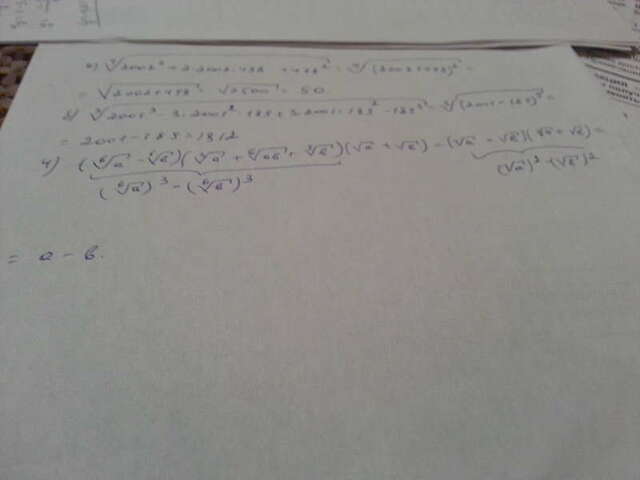 2) ⁴√(2002² + 2·2002·498 + 498²) = ⁴√(2002+498)² =
= √(2002+498) = √2500 = 50
3) ³√(2001³ - 3·2001²·189 + 3·2001·189² - 189³) = ³√(2001-189)³ =
= 2001-189 = 1812
4) (⁶√a - ⁶√b)(³√a + ⁶√ab + ³√b)(√a + √b) = (√a - √b)(√a + √b) =
(⁶√a)³ - (⁶√b)³ (√a)² - (√b)²
= a - b.